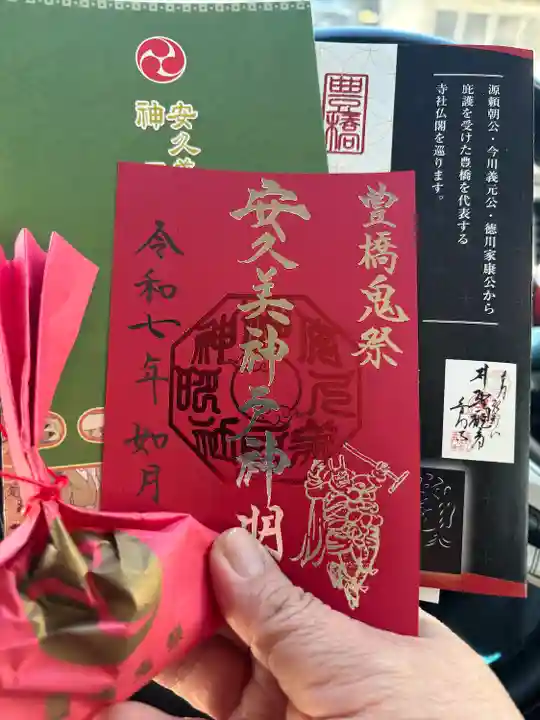 安久美
神
豊橋
源頼朝公・今川義元公・徳川家康公から
庇護を受けた豊橋を代表する
寺社仏閣を巡ります。
豊橋鬼祭
安久美神戸神明
令和七年 如月